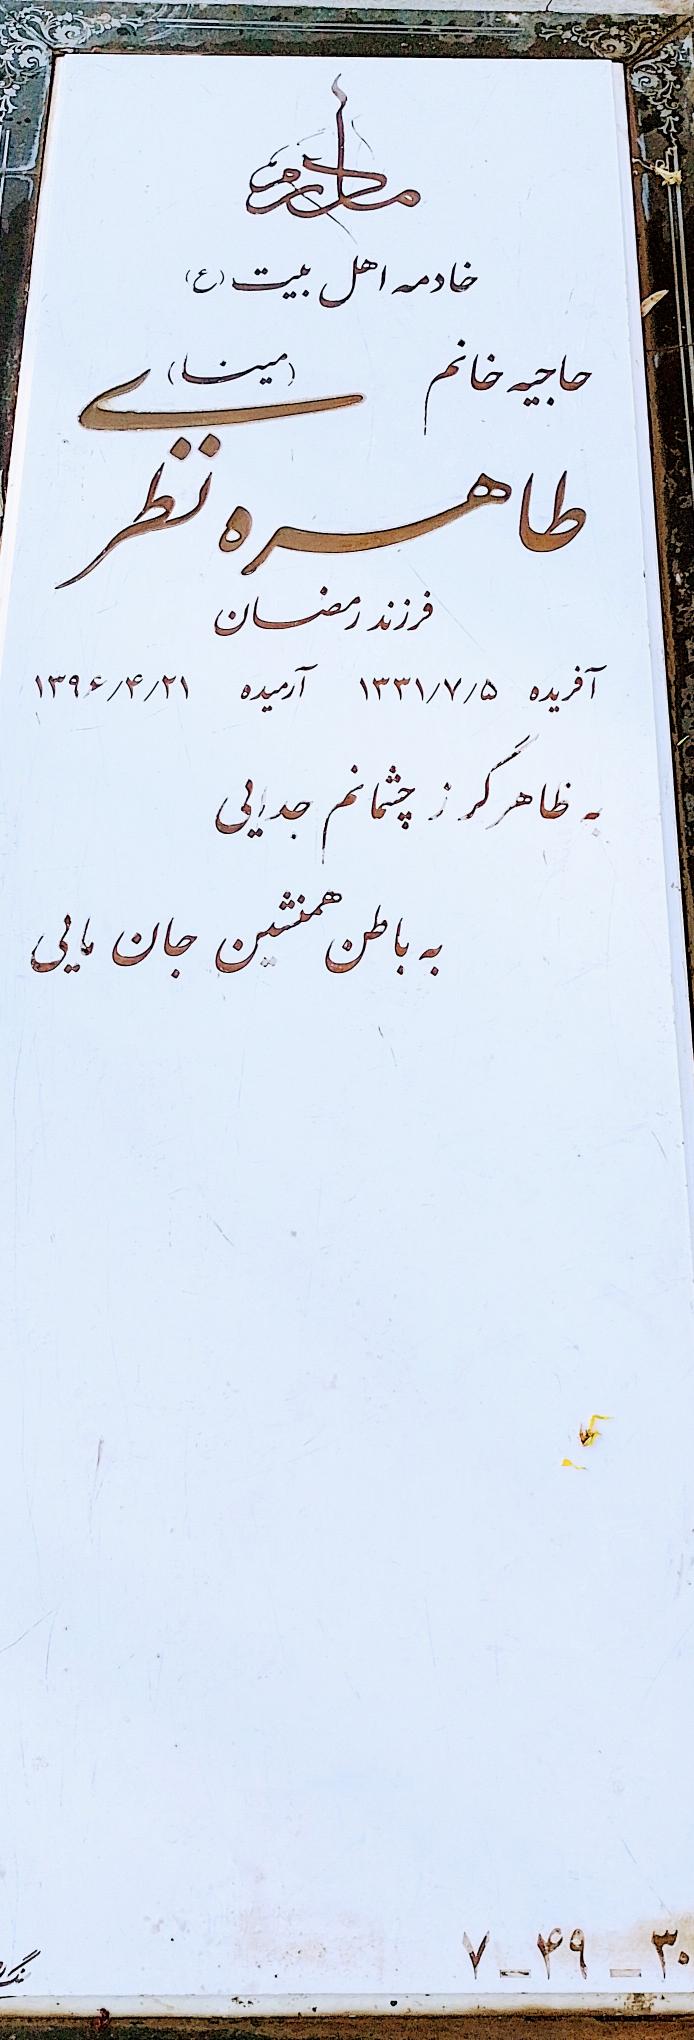 مادرم
خادمه اهل بیت (ع)
حاجیه خانم (مینا)
طاهره نظری
فرزند رمضان
آفریده ۱۳۳۱/۷/۵ آرمیده ۱۳۹۶/۴/۲۱
به ظاهر گر ز چشمانم جدایی
به باطن همنشین جان مایی
۷_۴۹_۳۰